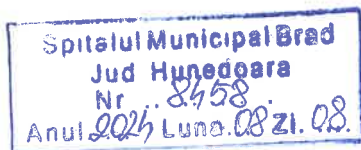 Spitalul Municipal Brad
Jud Hunedoara
Nr .. 8458 .
Anul 2024 Luna 08 Zi. 08.